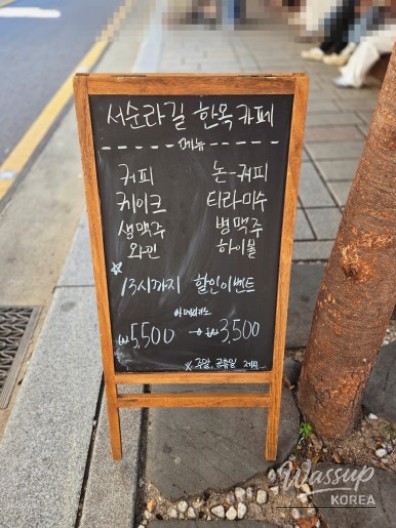 서순라길 한옥카페
메뉴
커피 논-커피
케이크 티라미수
생맥주 병맥주
와인 하이볼
☆
13시까지 할인이벤트
아메리카노
₩5,500 → ₩3,500
※ 주말, 공휴일 제외
Wassup
KOREA